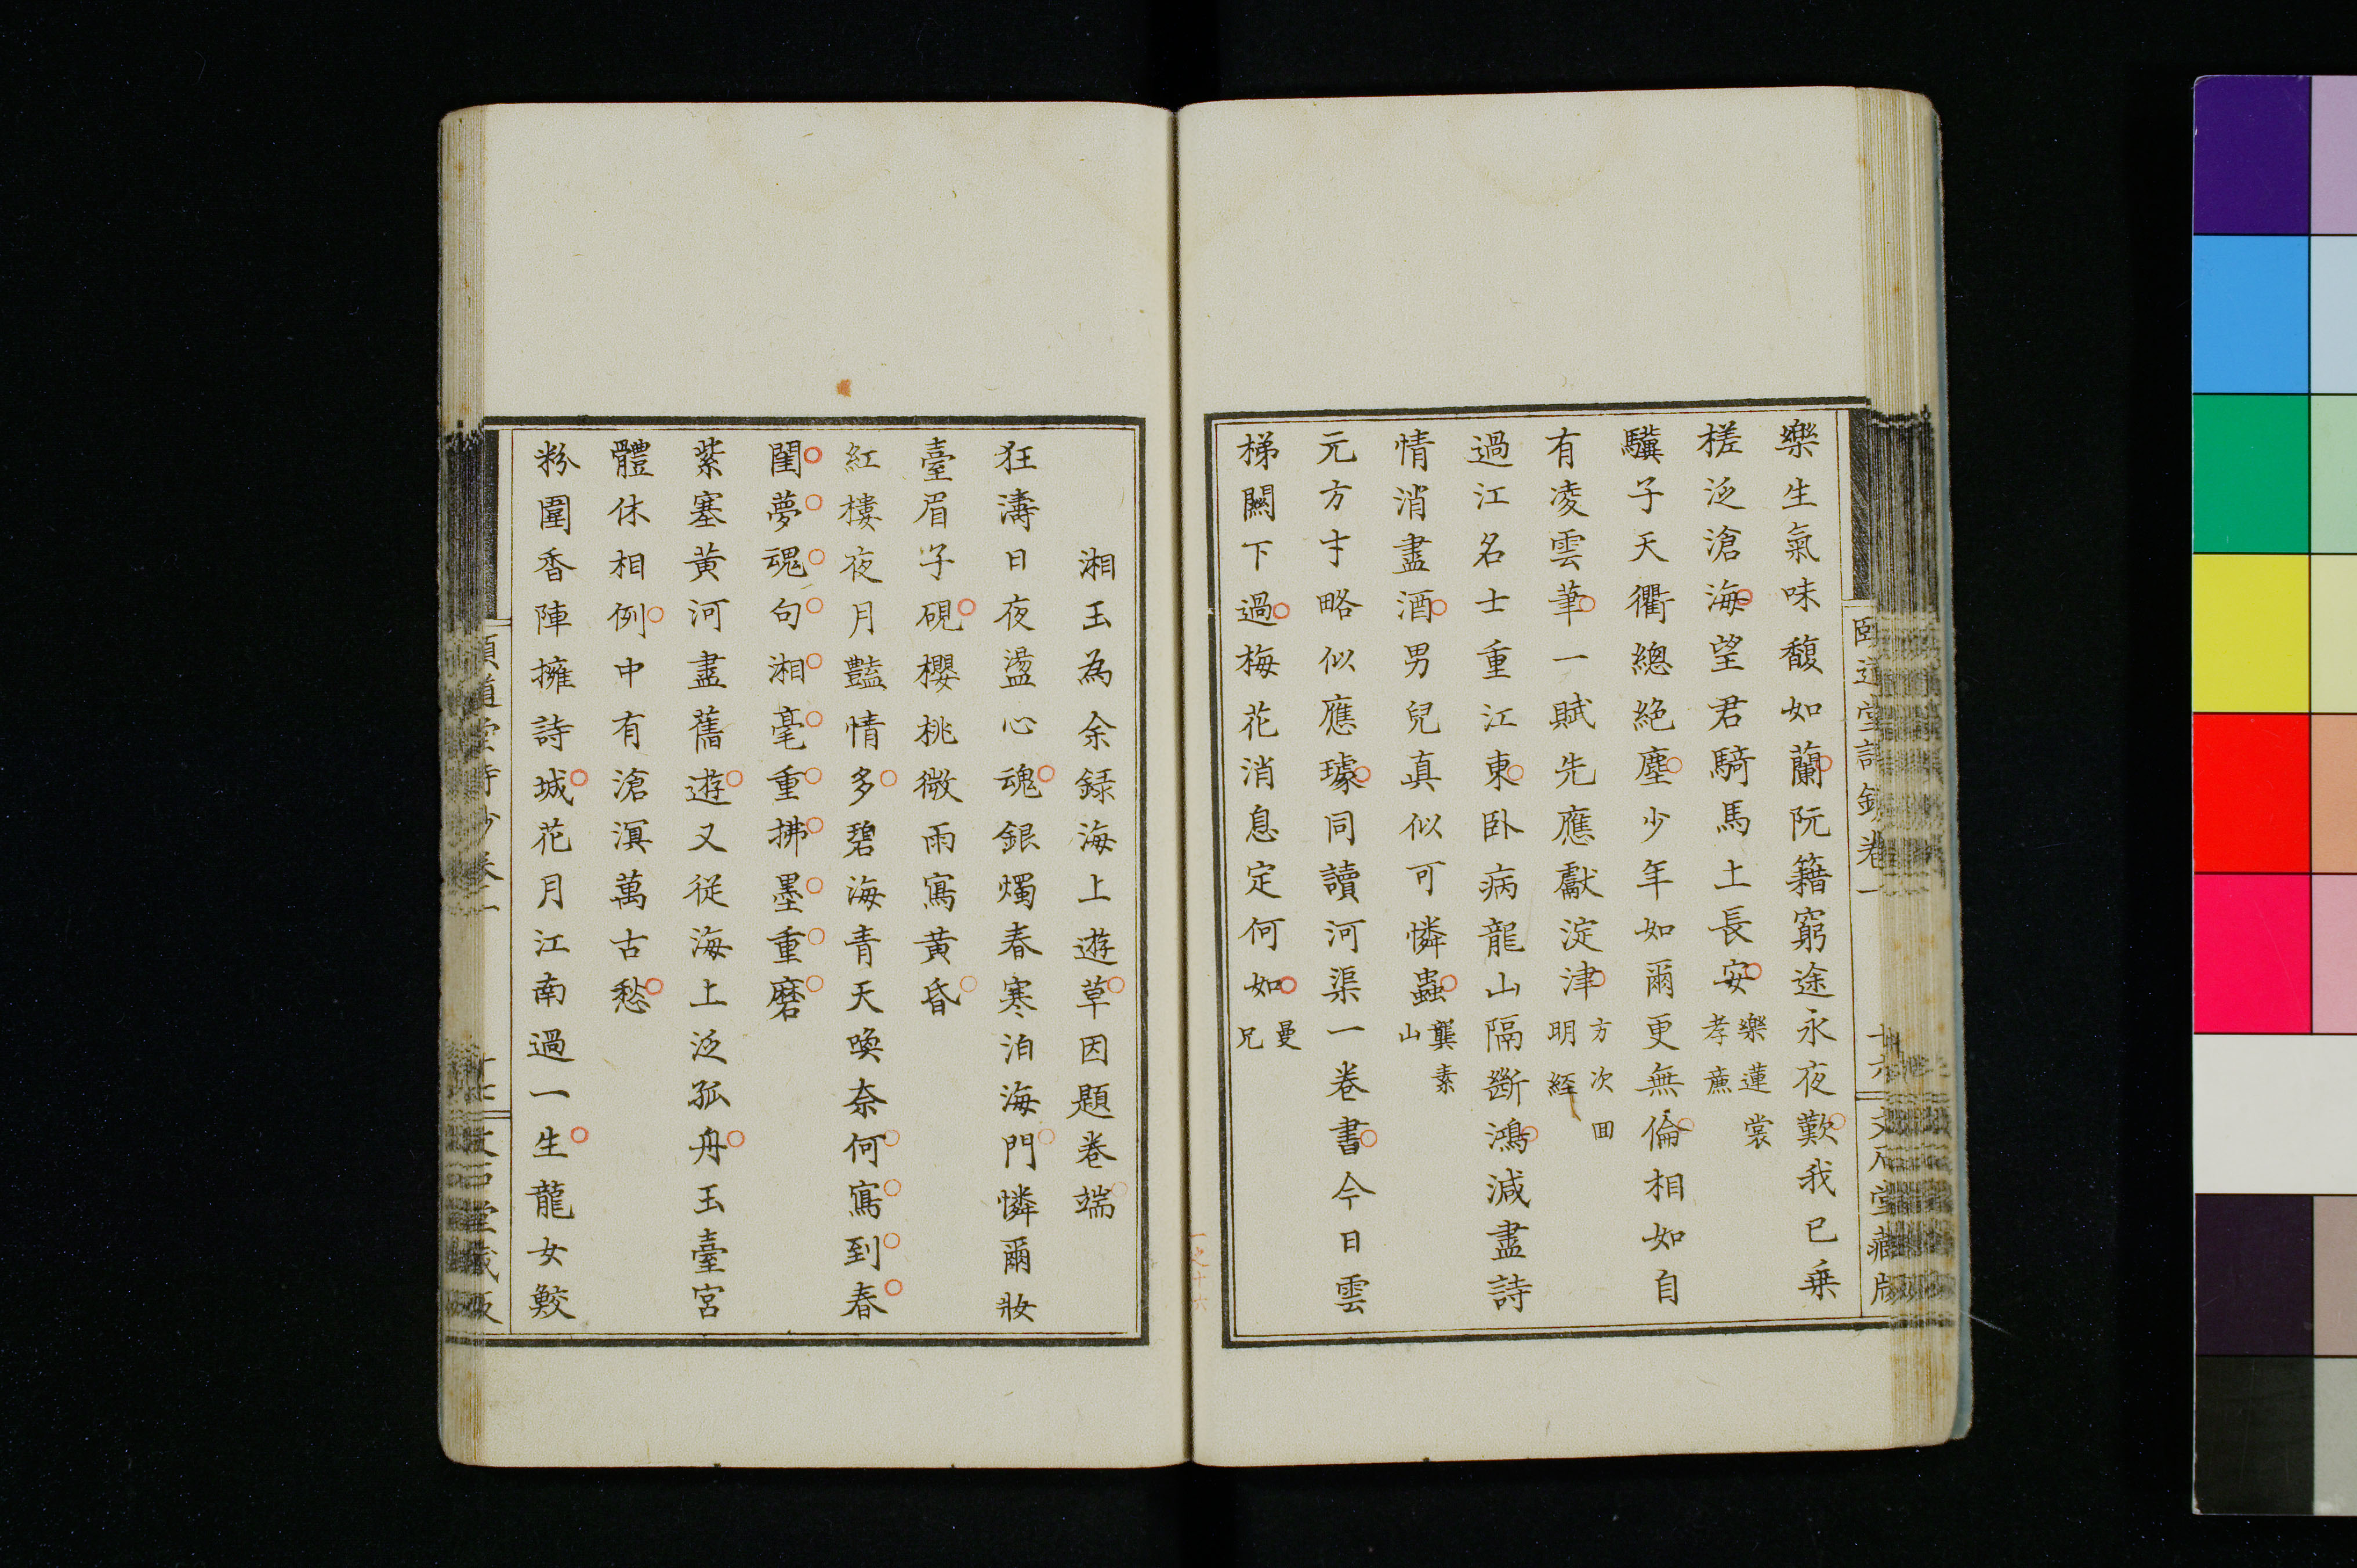 樂生氣味馥如蘭阮籍窮途永夜歎我已乗
槎泛滄海望君騎馬土長安樂蓮裳
孝廉
驥子天衢總絶塵少年如爾更無倫相如自
有凌雲筆一賦先應獻淀津方次田
明經
過江名士重江東卧病龍山隔斷鴻減盡詩
情消盡酒男兒真似可憐蟲龔素
山
元方才略似應璩同讀河渠一卷書今日雲
梯闕下過梅花消息定何如曼
兄
湘玉為余録海上遊草因題卷端
狂濤日夜盪心魂銀燭春寒泊海門憐爾妝
臺眉子硯櫻桃微雨寫黄昏
紅樓夜月豔情多碧海青天喚奈何寫到春
閨夢魂句湘毫重拂墨重磨
紫塞黄河盡舊遊又從海上泛孤舟玉臺宮
體休相例中有滄溟萬古愁
粉圍香陣擁詩城花月江南過一生龍女鮫